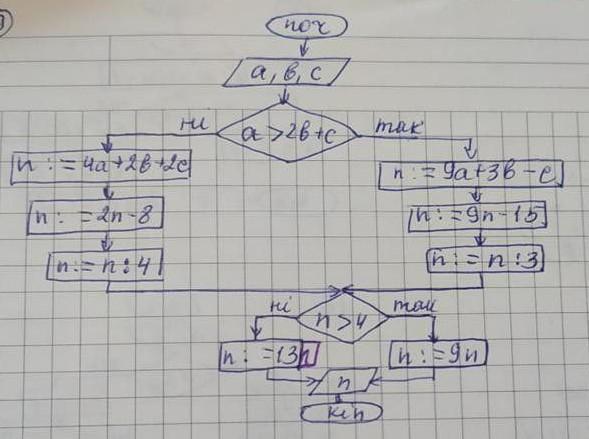 поч
a, b, c
ні a > 2b+c так
n := 4a+2b+2c
n := 9a+3b-c
n := 2n-8
n := 9n-15
n := n : 4
n := n : 3
ні n > 4 так
n := 13n
n := 9n
n
кін